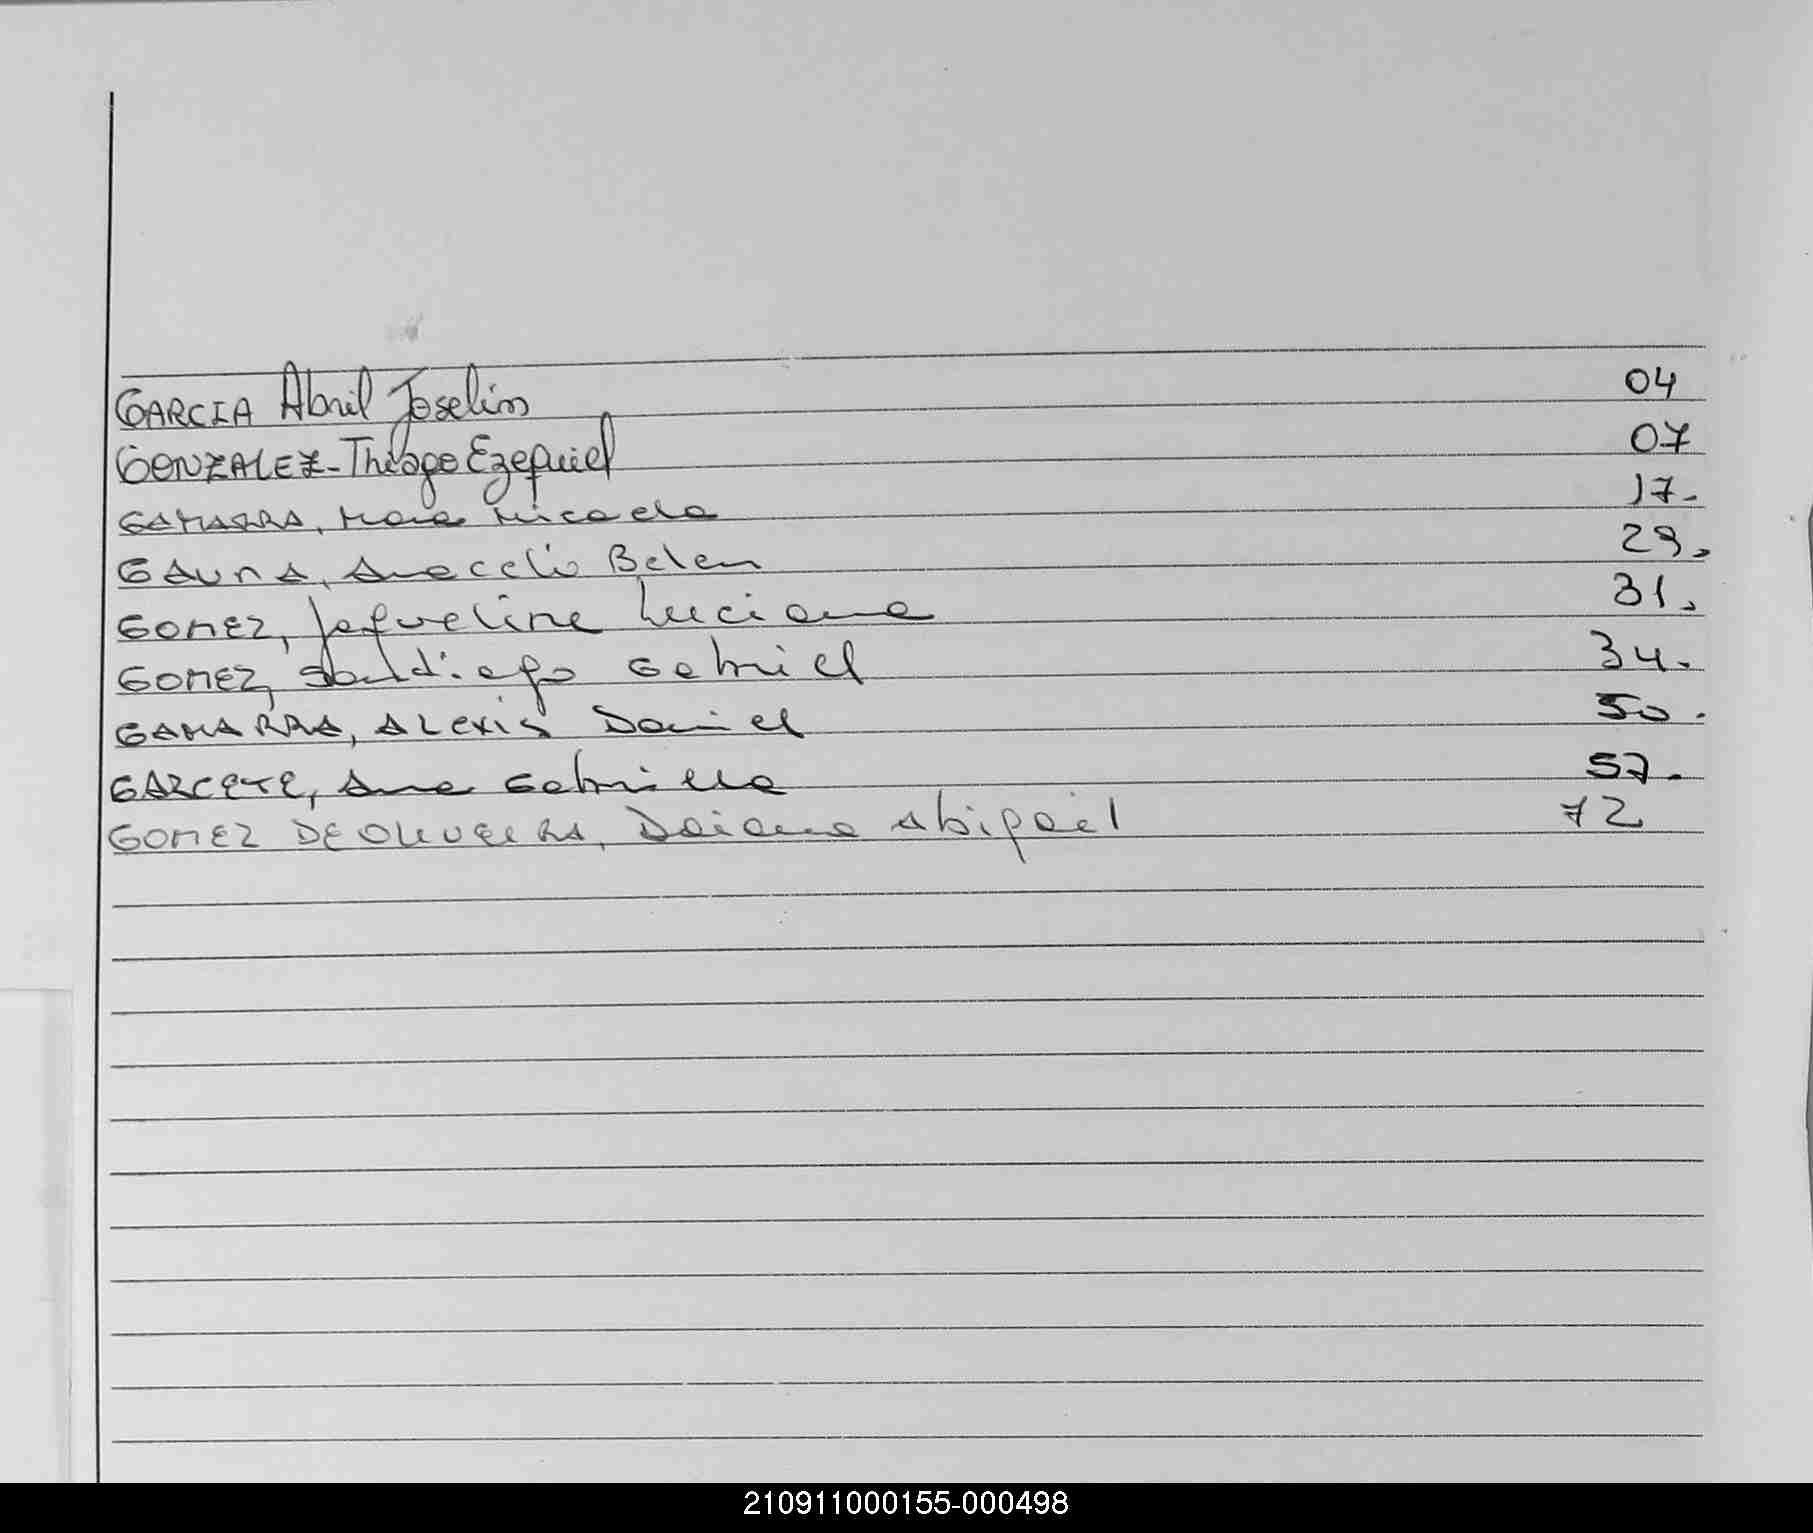 GARCIA Abril Joselin 04
GONZALEZ - Thiago Ezequiel 07
GAMARRA, Maia Micaela 17.
GAUNA, Aracelis Belen 29.
GOMEZ, Jaqueline Luciana 31.
GOMEZ, Gabriel 34.
GAMARRA, ALexis Daniel 50.
GARCETE, Ana Gabriella 57.
GOMEZ DE OLIVEIRA, Daiana Abigail 72
210911000155-000498